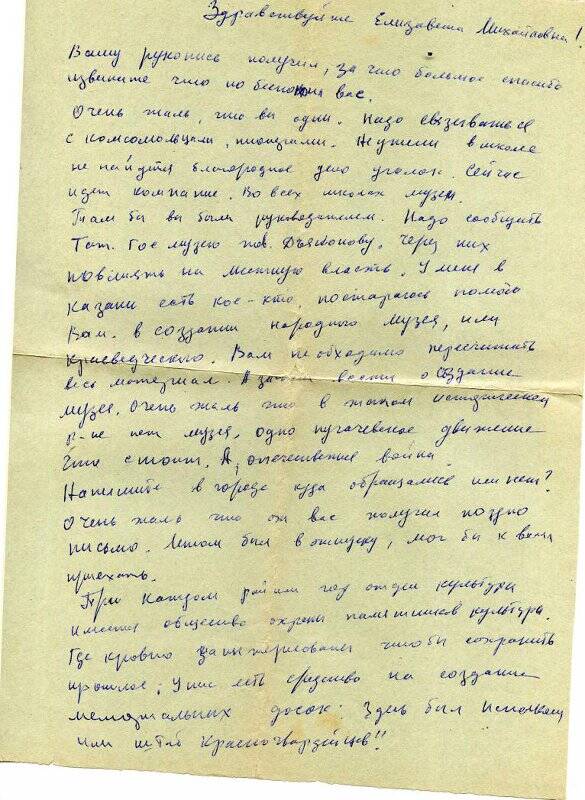 Здравствуйте Елизавета Михайловна!
Вашу рукопись получил, за что большое спасибо
извините что побеспокоил вас.
Очень жаль, что вы одни. Надо связываться
с комсомольцами, пионерами. Неужели в школе
не найдется благородное дело уголок. Сейчас
идет компание. Во всех школах музеи.
Там бы вы были руководителем. Надо сообщить
Тат. Гос музею тов. Дьяконову. Через них
повлиять на местную власть. У меня в
Казани есть кое-кто, постараюсь помочь
Вам. в создании народного музея, или
краеведческого. Вам необходимо пересчитать
весь материал. А о создание
музея. Очень жаль что в таком историческом
р-не нет музея, одно пугачевское движение
Что стоит. А, отечественная война
Напишите в города куда обращались или нет?
Очень жаль что от вас получил поздно
письмо. Летом был в отпуску, мог бы к вам
приехать.
При каждом рай или гор отдел культура
имеется общество охраны памятников культура.
Где кровно заинтересованы чтобы сохранить
прошлое; У нас есть средства на создание
мемориальных досок: Здесь был исполком
или штаб Красногвардейцев!!